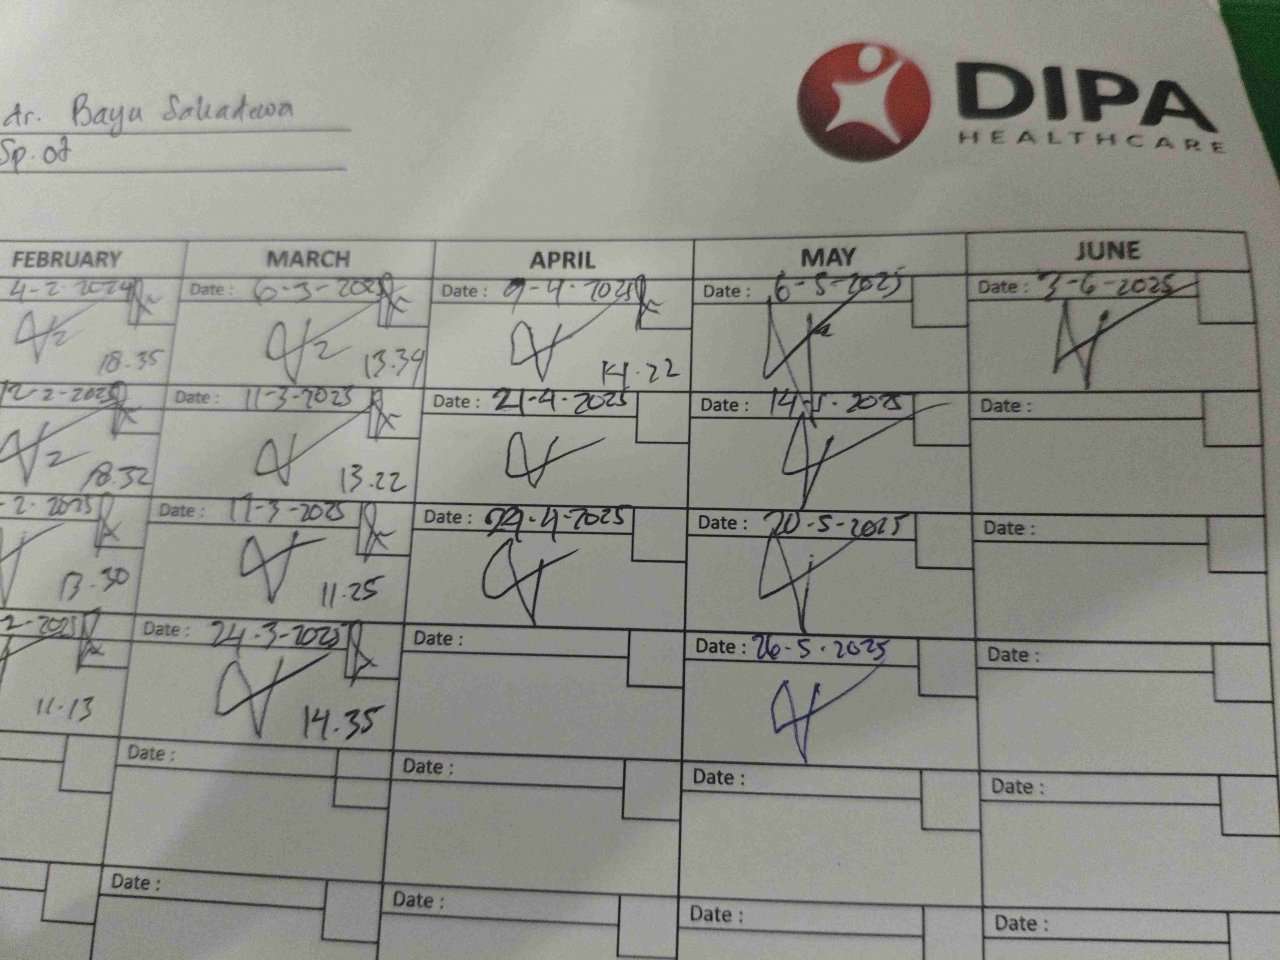 DIPA
HEALTHCARE
dr. Bayu Sakadewa
Sp. OT
FEBRUARY MARCH APRIL MAY JUNE
4-2-2024 Date : 6-3-2025 Date : 9-4-2025 Date : 6-5-2025 Date : 3-6-2025
18.35 13.34 14.22
12-2-2025 Date : 11-3-2025 Date : 21-4-2025 Date : 14-5-2025 Date :
18.32 13.22
-2-2025 Date : 17-3-2025 Date : 29-4-2025 Date : 20-5-2025 Date :
13.30 11.25
2-2025 Date : 24-3-2025 Date : Date : 26-5-2025 Date :
11.13 14.35
Date : Date : Date : Date :
Date : Date : Date : Date :